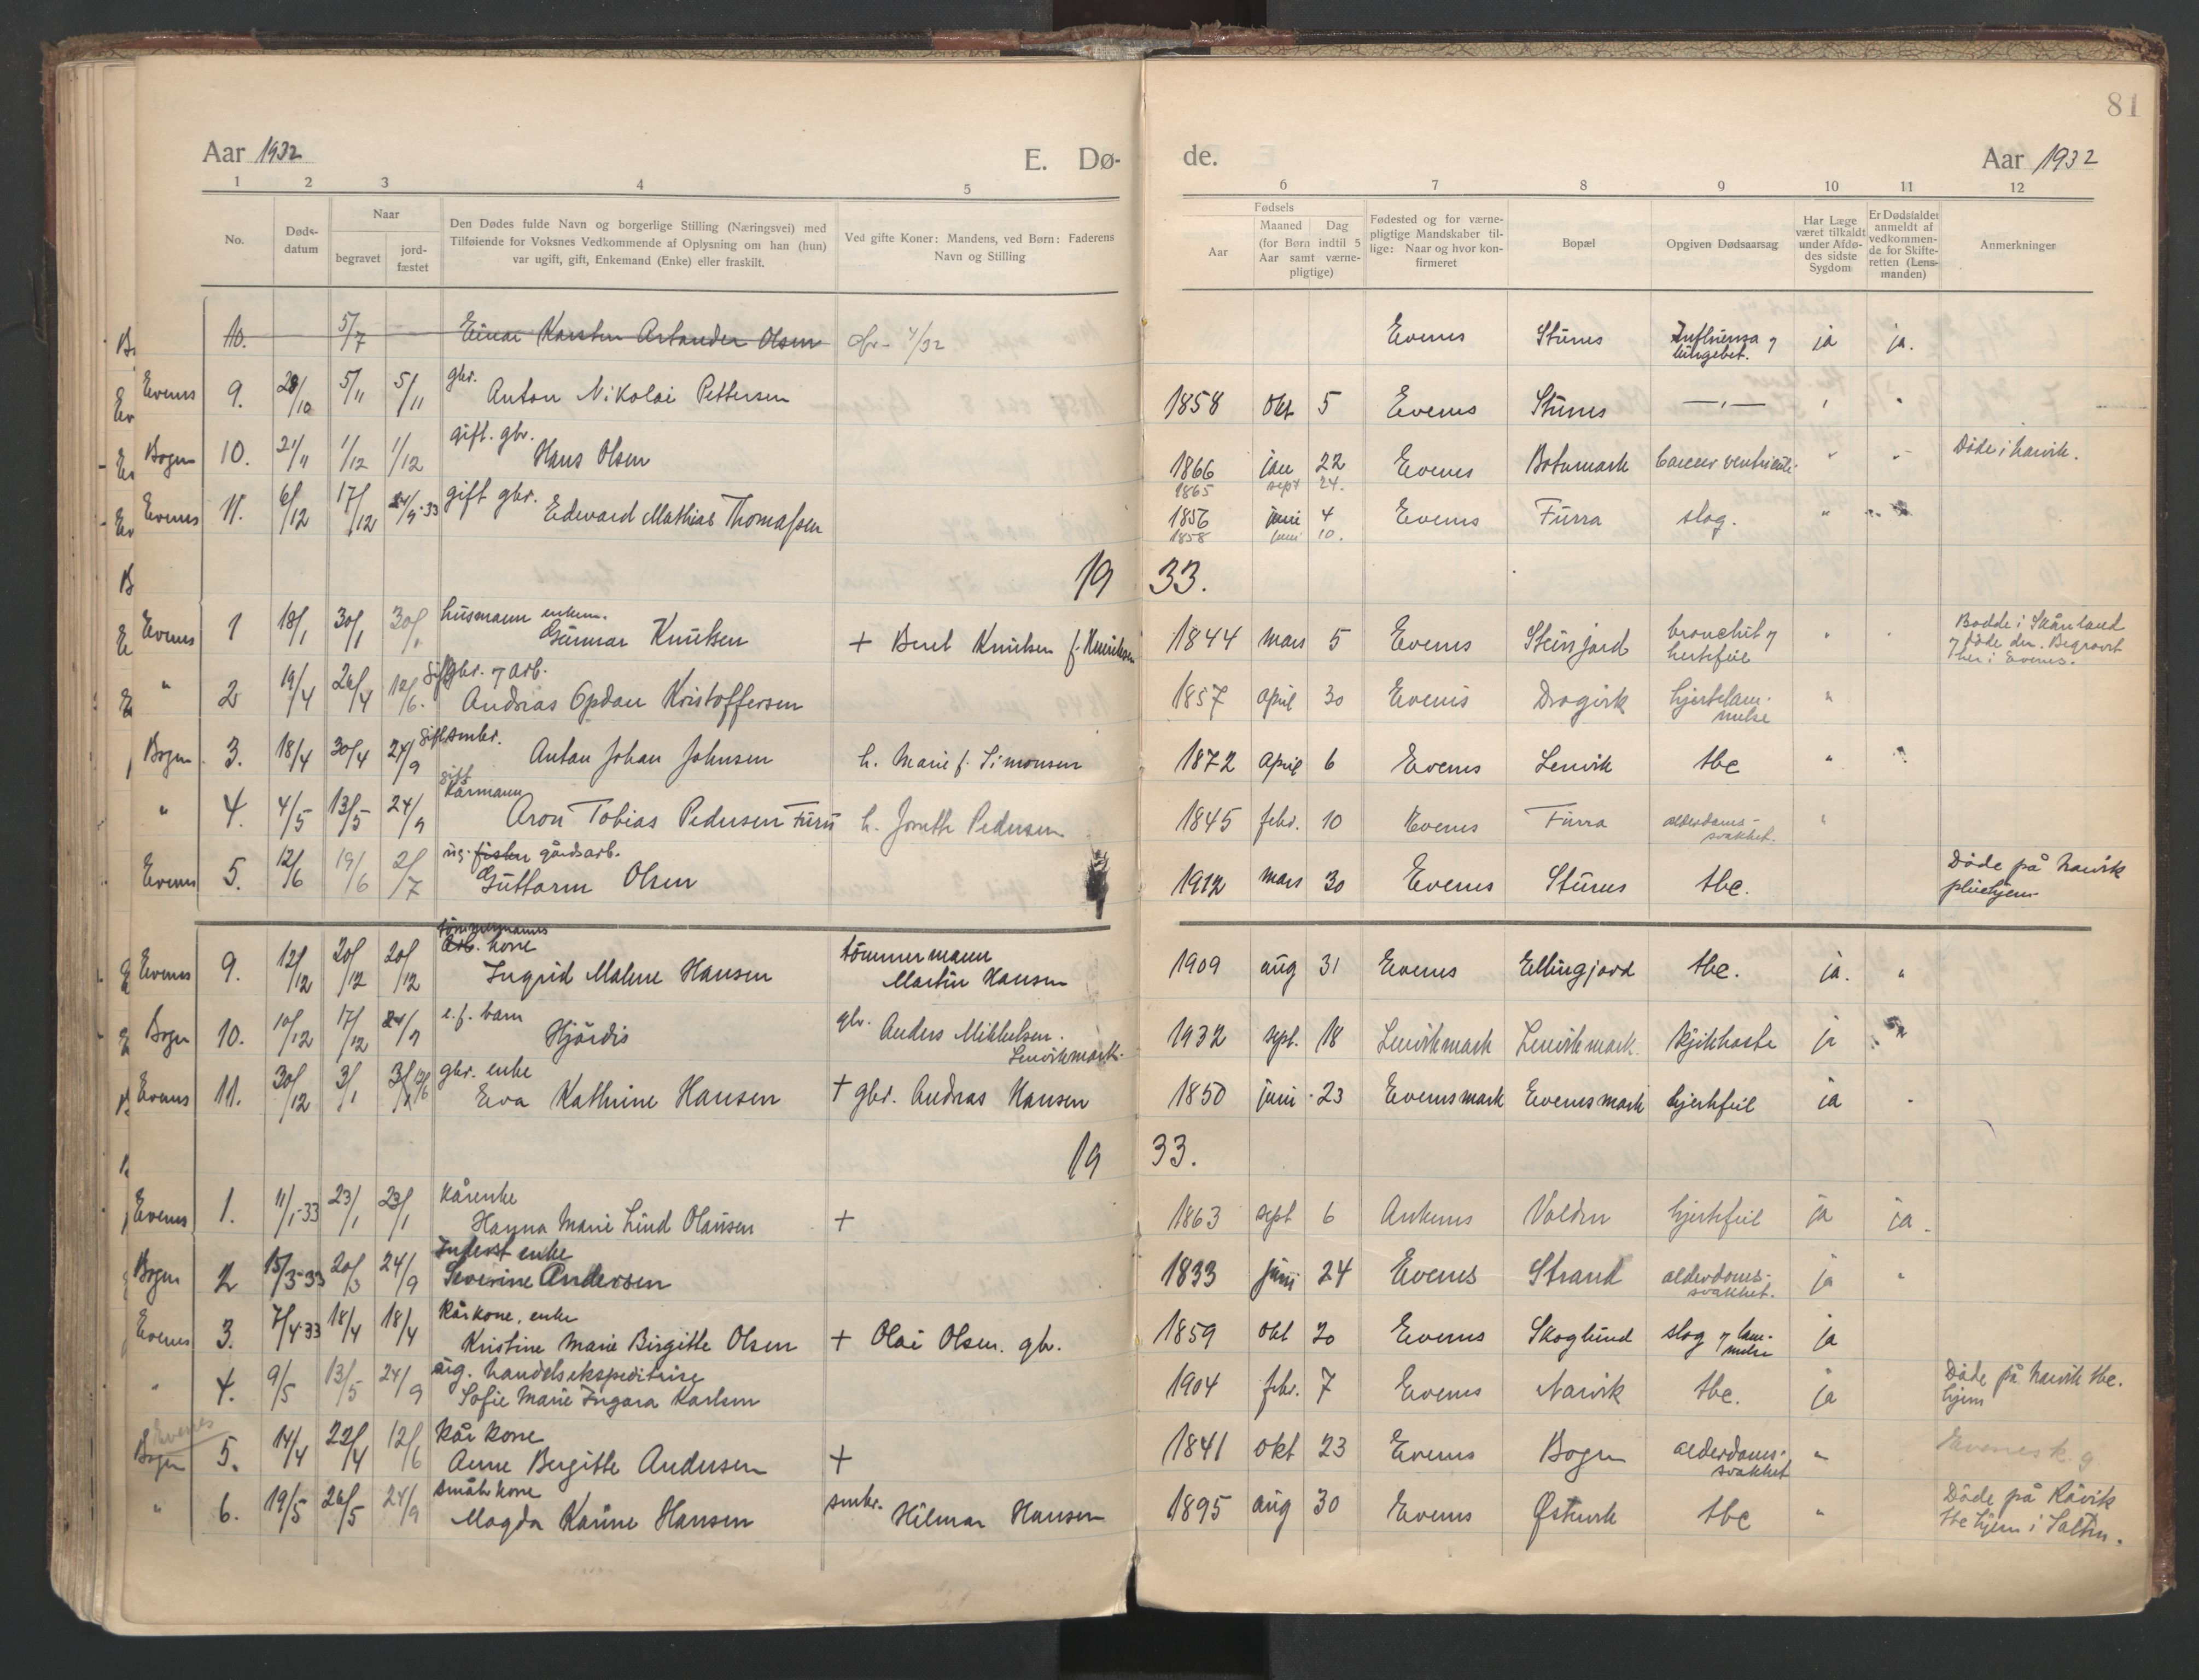 81
Aar 1932 E. Dø- de. Aar 1932
1 2 3 4 5 6 7 8 9 10 11 12
No.
Døds-
datum
Naar
begravet
jord-
fæstet
Den Dødes fulde Navn og borgerlige Stilling (Næringsvei) med
Tilføiende for Voksnes Vedkommende af Oplysning om han (hun)
var ugift, gift, Enkemand (Enke) eller fraskilt.
Ved gifte Koner: Mandens, ved Børn: Faderens
Navn og Stilling
Fødsels
Aar
Maaned Dag
(for Børn indtil 5
Aar samt værne-
pligtige)
Fødested og for værne-
pligtige Mandskaber til-
lige: Naar og hvor kon-
firmeret
Bopæl
Opgiven Dødsaarsag
Har Læge
været tilkaldt
under Afdø-
des sidste
Sygdom
Er Dødsfaldet
anmeldt af
vedkommen-
de for Skifte-
retten (Lens-
manden)
Anmerkninger
10. 5/7 Einar Karsten Artander Olsen 4/32 Evenes Stunes Influensa & ja ja.
lungebet.
gbr.
Evenes 9. 28/10 5/11 5/11 Anton Nikolai Pettersen 1858 okt 5 Evenes Stunes — " — " "
gift. gbr.
Bogen 10. 21/11 1/12 1/12 Hans Olsen 1866 jan 22 Evenes Botnmark cancer ventriculi " " Døde i Narvik.
1865 sept 24.
gift gbr.
Evenes 11. 6/12 17/12 24/9-33 Edvard Mathias Thomassen 1856 juni 4 Evenes Furra slag. "
1858 juni 10.
19 33.
husmann enkem.
Evenes 1 18/1 30/1 30/1 Gunnar Knutsen + Beret Knutsen f. Henriksen 1844 mars 5 Evenes Steinsjord bronchit & hertefeil " " Bodde i Skånland
& døde der. Begravet
her i Evenes.
gift gbr. & arb.
" 2 19/4 26/4 12/6. Andreas Opdan Kristoffersen 1857 april 30 Evenes Dragvik hjertelam-
melse "
gift smbr.
Bogen 3. 18/4 30/4 24/9 Anton Johan Johnsen h. Marie f. Simonsen 1872 april 6 Evenes Lenvik tbc "
gift
kårmann
" 4. 4/5 13/5 24/9 Aron Tobias Pedersen Furu h. Joneth Pedersen 1845 febr. 10 Evenes Furra alderdoms-
svakhet. "
ug. fisker gårdsarb.
Evenes 5. 12/6 19/6 2/7 Guttorm Olsen 1912 mars 30 Evenes Stunes tbc. Døde på Narvik
pleiehjem
tømmermanns
arb. kone
Evenes 9. 12/12 20/12 20/12 Ingrid Malene Hansen tømmermann
Martin Hansen 1909 aug 31 Evenes Ellingjord tbc. ja. "
e. f. barn
Bogen 10. 10/12 17/12 24/9 Hjördis gbr. Anders Mikkelsen.
Lenvikmark. 1932 sept. 18 Lenvikmark Lenvikmark. kikhoste ja "
gbr. enke
Evenes 11. 30/12 3/1 3/1 12/6 Eva Kathrine Hansen + gbr. Andreas Hansen 1850 juni 23 Evenesmark Evenesmark hjertefeil ja "
19 33.
kårenke
Evenes 1. 11/1-33 23/1 23/1 Hanna Marie Lind Olausen + 1863 sept 6 Ankenes Volden hjertefeil ja ja.
Inderst enke
Bogen 2 15/3-33 20/3 24/9 Severine Andersen 1833 juni 24 Evenes Strand alderdoms-
svakhet. ja "
Kårkone, enke
Evenes 3. 7/4-33 18/4 18/4 Kristine Marie Birgitte Olsen + Olai Olsen. gbr. 1859 okt 20 Evenes Skoglund slag & lam-
melse ja
ug. handelsekspeditrise
" 4. 9/5 13/5 24/9 Sofie Marie Ingara Karlsen 1904 febr. 7 Evenes Narvik tbc. ja Døde på Narvik tbc.
hjem
Evenes
kår kone
Bogen 5. 14/4 22/4 12/6 Anne Bergitte Andersen + 1841 okt 23 Evenes Bogen alderdoms-
svakhet " Evenes k. g
småbr kone
" 6. 19/5 26/5 24/9 Magda Karine Hansen smbr. Hilmar Hansen 1895 aug 30 Evenes Østervik tbc " Døde på Råvik
tbc hjem i Salten.